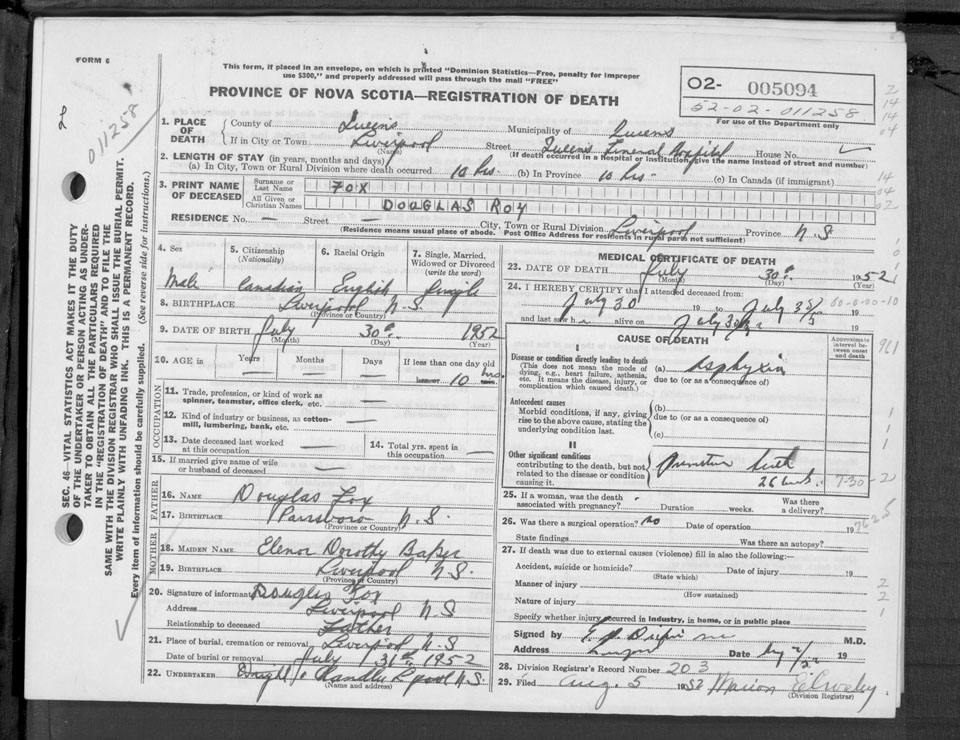 FORM 6
This form, if placed in an envelope, on which is printed "Dominion Statistics—Free, penalty for improper
use $300," and properly addressed will pass through the mail "FREE"
PROVINCE OF NOVA SCOTIA—REGISTRATION OF DEATH
02- 005094
52-02-011258
For use of the Department only
011258
SEC. 46 VITAL STATISTICS ACT MAKES IT THE DUTY
OF THE UNDERTAKER OR PERSON ACTING AS UNDER-
TAKER TO OBTAIN ALL THE PARTICULARS REQUIRED
IN THE "REGISTRATION OF DEATH" AND TO FILE THE
SAME WITH THE DIVISION REGISTRAR WHO SHALL ISSUE THE BURIAL PERMIT.
WRITE PLAINLY WITH UNFADING INK. THIS IS A PERMANENT RECORD.
Every item of information should be carefully supplied. (See reverse side for instructions.)
1. PLACE OF DEATH County of Queens Municipality of Queens
If in City or Town Liverpool Street Queens General Hospital House No.
(Name) (If death occurred in a Hospital or Institution, give the name instead of street and number)
2. LENGTH OF STAY (in years, months and days)
(a) In City, Town or Rural District where death occurred 10 hrs (b) In Province 10 hrs (c) In Canada (if immigrant)
3. PRINT NAME OF DECEASED Surname or Last Name FOX
All Given or Christian Names DOUGLAS ROY
RESIDENCE No. — Street — City, Town or Rural Division Liverpool Province N.S
(Residence means usual place of abode. Post Office Address for residents in rural parts not sufficient)
4. Sex 5. Citizenship (Nationality) 6. Racial Origin 7. Single, Married, Widowed or Divorced (write the word)
Male Canadian English Single
8. BIRTHPLACE Liverpool N.S.
(Province or Country)
9. DATE OF BIRTH July 30th 1952
(Month) (Day) (Year)
10. AGE in Years Months Days If less than one day old
— — — 10 hrs.
OCCUPATION
11. Trade, profession, or kind of work as
spinner, teamster, office clerk, etc. —
12. Kind of industry or business, as cotton-
mill, lumbering, bank, etc. —
13. Date deceased last worked
at this occupation — 14. Total yrs. spent in
this occupation —
15. If married give name of wife
or husband of deceased —
FATHER
16. NAME Douglas Fox
17. BIRTHPLACE Parrsboro N.S.
(Province or Country)
MOTHER
18. MAIDEN NAME Elenor Dorothy Baker
19. BIRTHPLACE Liverpool N.S.
(Province or Country)
20. Signature of informant Douglas Fox
Address Liverpool N.S
Relationship to deceased Father
21. Place of burial, cremation or removal Liverpool N.S
Date of burial or removal July 31st 1952
22. UNDERTAKER Wright N.S.
(Name and address)
MEDICAL CERTIFICATE OF DEATH
23. DATE OF DEATH July 30th 1952
(Month) (Day) (Year)
24. I HEREBY CERTIFY that I attended deceased from:
July 30 19 to July 19
and last saw h alive on July 19
CAUSE OF DEATH
Approximate interval between onset and death
I
Disease or condition directly leading to death
(This does not mean the mode of
dying, e.g., heart failure, asthenia,
etc. It means the disease, injury, or
complication which caused death.)
(a) Asphyxia
due to (or as a consequence of)
Antecedent causes
Morbid conditions, if any, giving
rise to the above cause, stating the
underlying condition last.
(b)
due to (or as a consequence of)
(c)
II
Other significant conditions
contributing to the death, but not
related to the disease or condition
causing it.
birth
7-30-2
25. If a woman, was the death
associated with pregnancy? Duration weeks. Was there
a delivery?
26. Was there a surgical operation? no Date of operation 19
State findings Was there an autopsy?
27. If death was due to external causes (violence) fill in also the following:—
Accident, suicide or homicide? Date of injury 19
(State which)
Manner of injury
(How sustained)
Nature of injury
Specify whether injury occurred in Industry, in home, or in public place
Signed by M.D.
Address Date 19
28. Division Registrar's Record Number 203
29. Filed Aug. 5 1952 Marion
(Division Registrar)